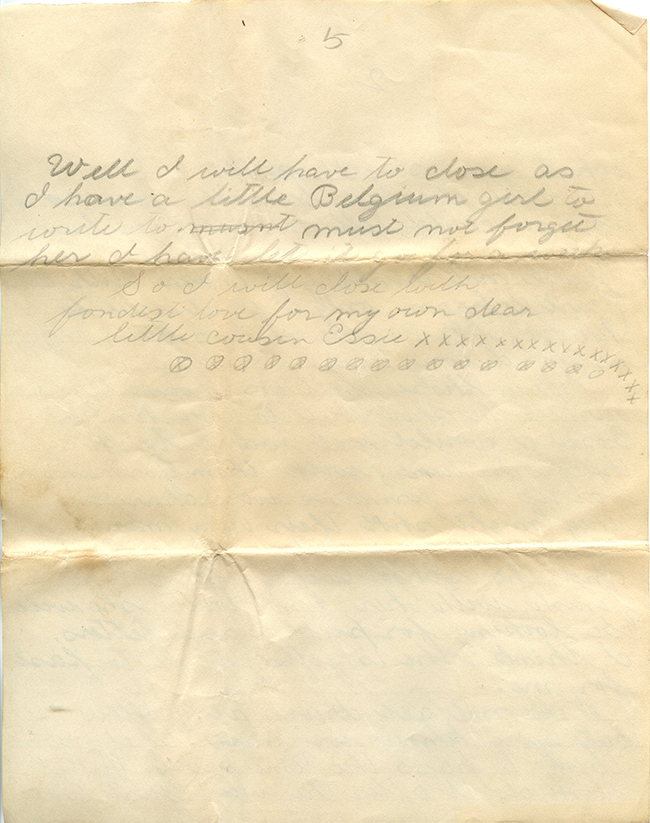 5
Well I will have to close as
I have a little Belgium girl to
write to musnt must not forget
her I have let it go for a week
So I will close with
fondest love for my own dear
little cousin Essie xxxxxxxxxxxxxxxxxx
ⓧ ⓧ ⓧ ⓧ ⓧ ⓧ ⓧ ⓧ ⓧ ⓧ ⓧ ⓧ ⓧ ⓧ ⓧ o